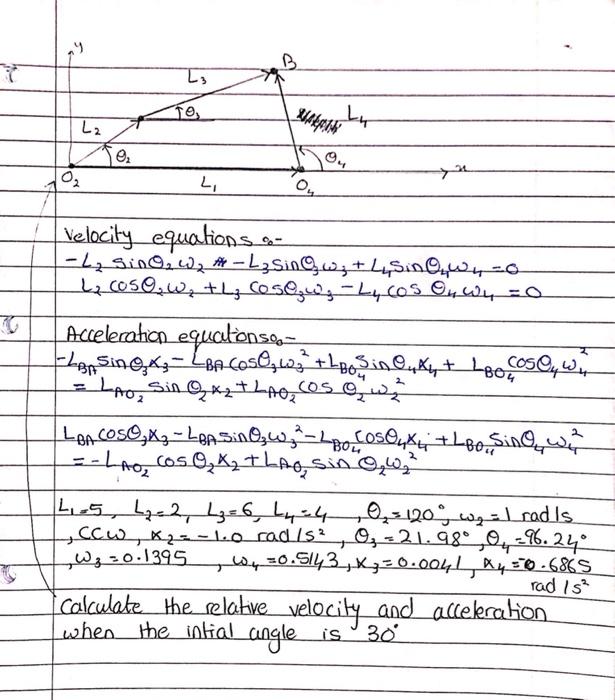 y
B
L₃
θ₃
L₄
L₂
θ₂
θ₄
x
O₂
L₁
O₄
Velocity equations :-
-L₂ sinθ₂ω₂ - L₃sinθ₃ω₃ + L₄sinθ₄ω₄ = 0
L₂ cosθ₂ω₂ + L₃ cosθ₃ω₃ - L₄ cos θ₄ω₄ = 0
Acceleration equations :-
-L_BA sinθ₃α₃ - L_BA cosθ₃ω₃² + L_BO₄ sinθ₄α₄ + L_BO₄ cosθ₄ω₄²
= L_AO₂ sin θ₂α₂ + L_AO₂ cos θ₂ω₂²
L_BA cosθ₃α₃ - L_BA sinθ₃ω₃² - L_BO₄ cosθ₄α₄ + L_BO₄ sinθ₄ω₄²
= -L_AO₂ cosθ₂α₂ + L_AO₂ sin θ₂ω₂²
L₁=5, L₂=2, L₃=6, L₄=4, θ₂=120°, ω₂=1 rad/s
, CCW, α₂=-1.0 rad/s², θ₃=21.98°, θ₄=96.24°
, ω₃=0.1395, ω₄=0.5143, α₃=0.0041, α₄=-0.6865
rad/s²
Calculate the relative velocity and acceleration
when the intial angle is 30°